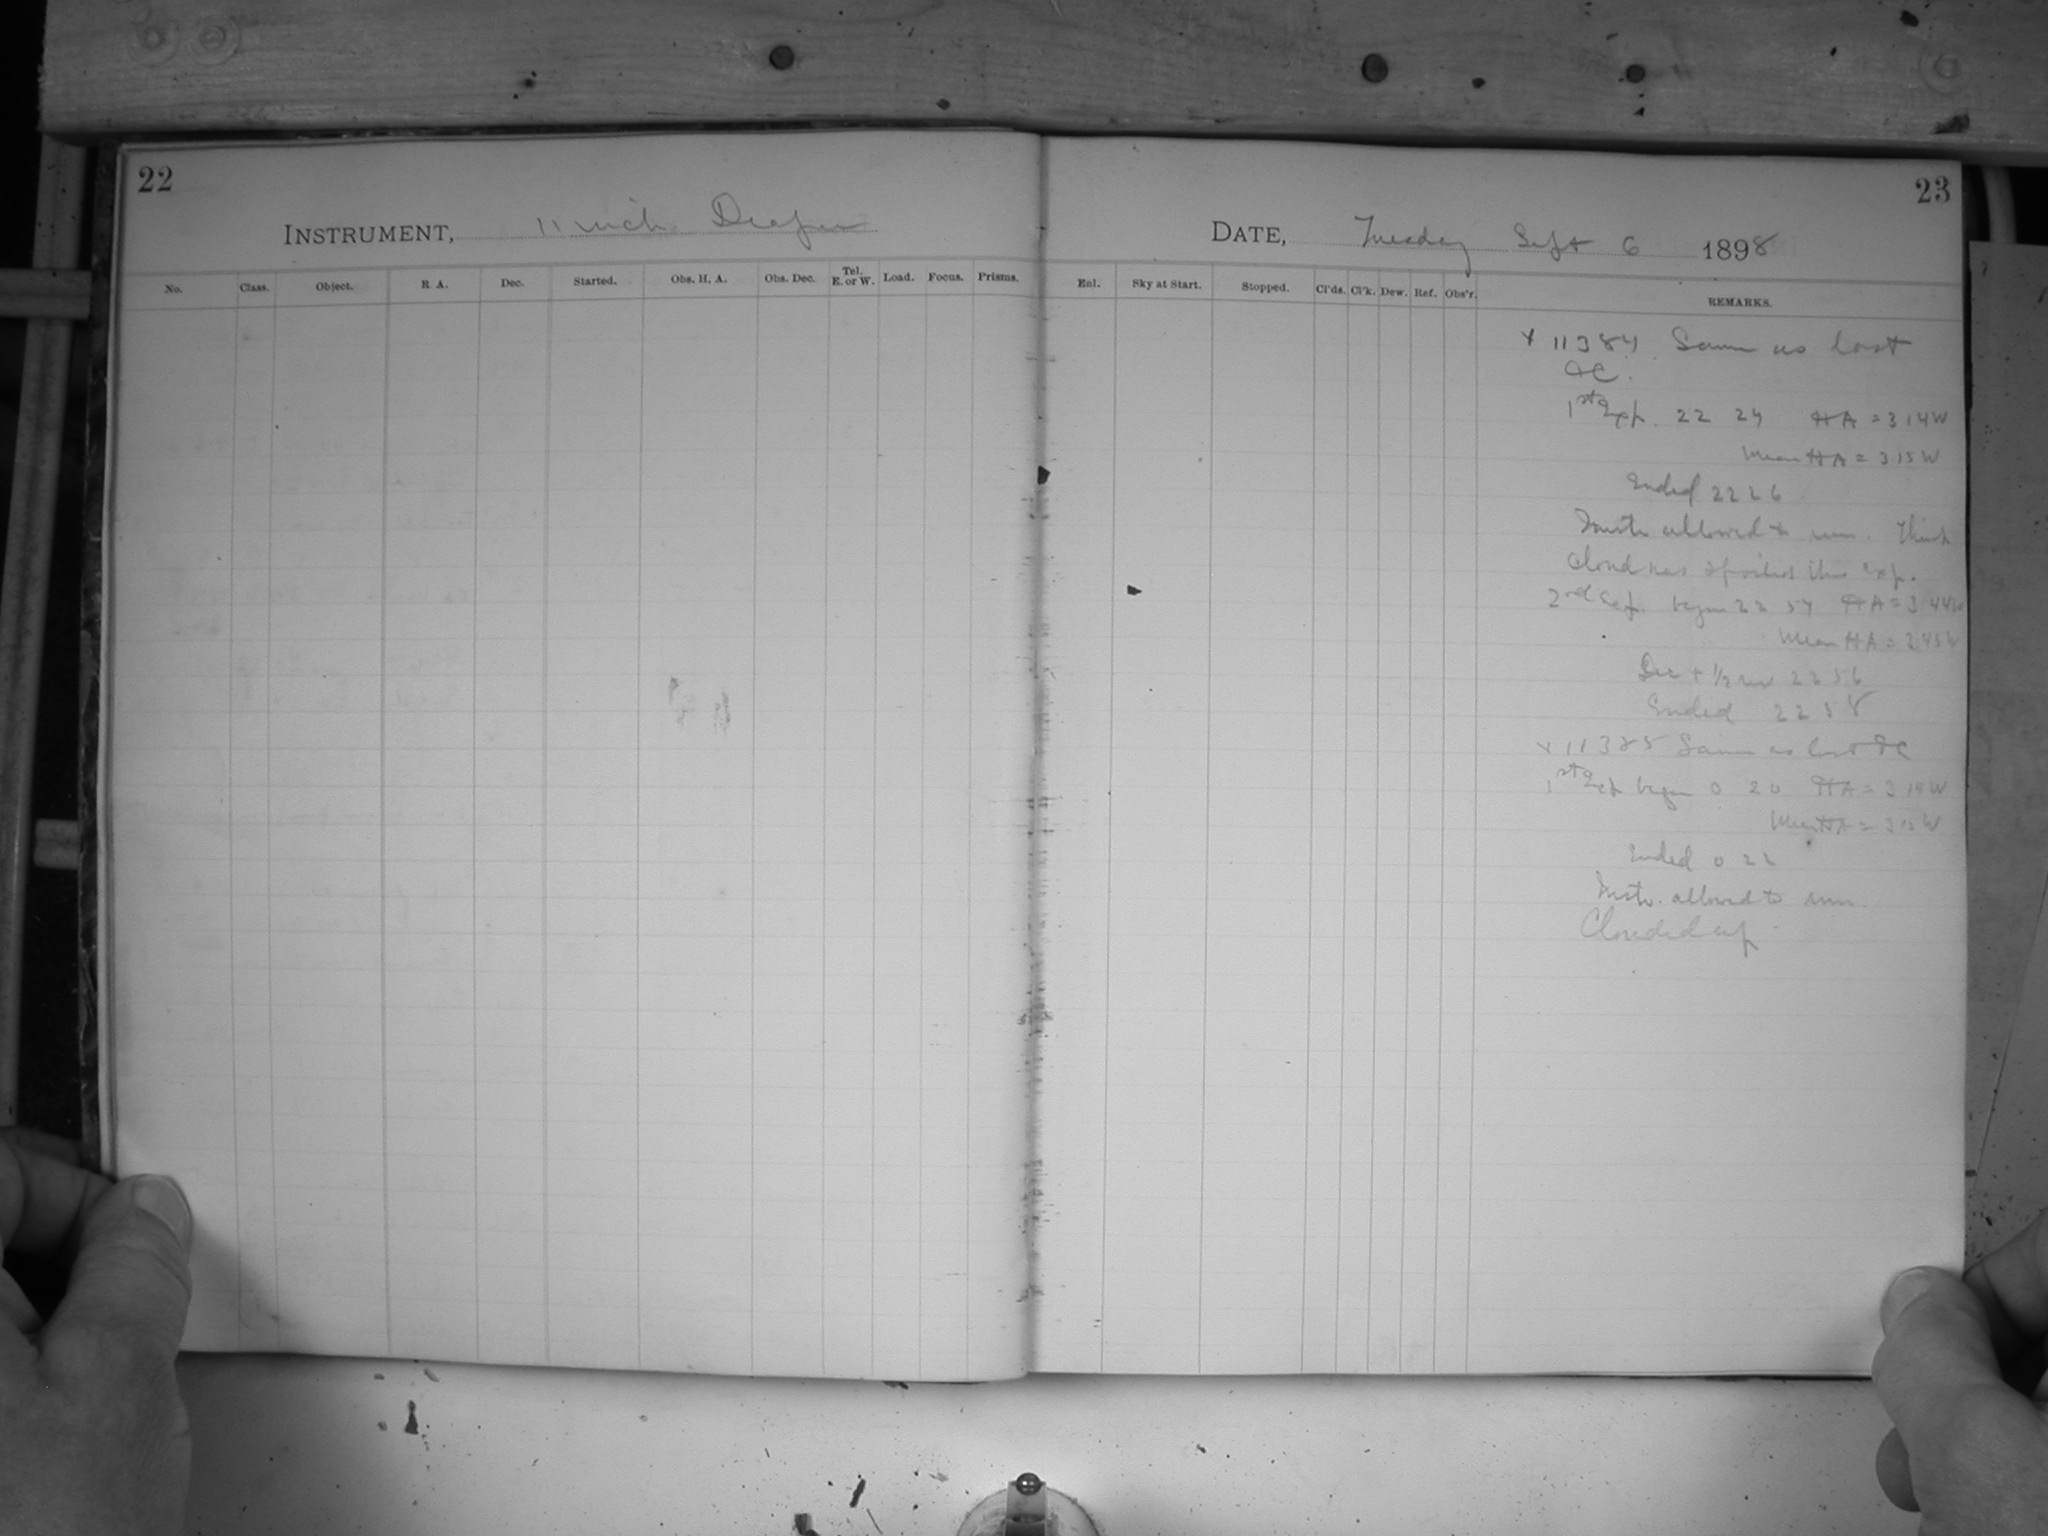 22
INSTRUMENT, 11 inch Draper
No. Class. Object. R. A. Dec. Started. Obs. H. A. Obs. Dec. Tel. E. or W. Load. Focus. Prisms.
23
DATE, Tuesday Sept 6 1898
Enl. Sky at Start. Stopped. Cl'ds. Cl'k. Dew. Ref. Obs'r. REMARKS.
X 11384 Same as last
DC.
1st Exp. 22 24 HA = 3 14 W
Mean HA = 3 15 W
Ended 22 26
Instr allowed to run. Think
cloud has spoiled this exp.
2nd Exp. began 22 54 HA = 3 44 W
Mean HA = 3 45 W
Dec + 1/2 rev 22 56
Ended 22 58
X 11385 Same as last DC
1st Exp began 0 20 HA = 3 14 W
Mean HA = 3 15 W
Ended 0 22
Instr. allowed to run.
Clouded up